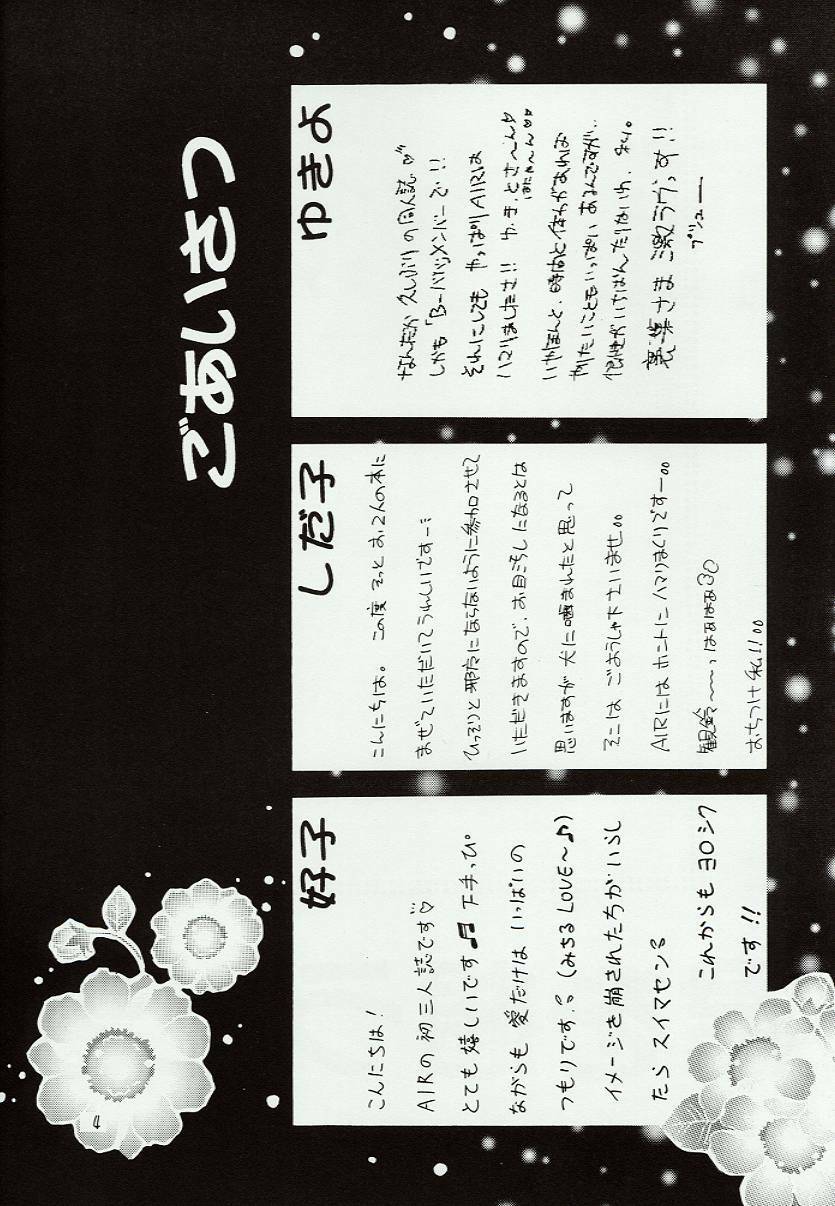 ごあいさつ
好子
こんにちは!
AIRの初三人誌です♡
とても嬉しいです♬ 下手っぴ
ながらも 愛だけは いっぱいの
つもりです。(みちる LOVE〜♪)
イメージを崩されたちがいらし
たら スイマセン
これからも ヨロシク
です!!
しだ子
こんにちは。この度 そっと お二人の本に
まぜていただいてうれしいですー
ひっそりと邪魔にならないように参加させて
いただきますので、お目汚しになるとは
思いますが 犬に噛まれたと思って
そこは ごようしゃ下さいませ。
AIRには ホントに ハマりまくりですー。
観鈴〜〜っはぁはぁ
おちつけ私!!
ゆきよ
なんだか 久しぶりの 同人誌♡
しかも「B-バリッ」メンバーで!!
それにしても やっぱり AIRは
ハマりましたさ!!
いやほんと、時間と体力があれば
やりたいことも いっぱい あるんですが、
裏葉さま 激ラヴっす!!
ブシュー
4